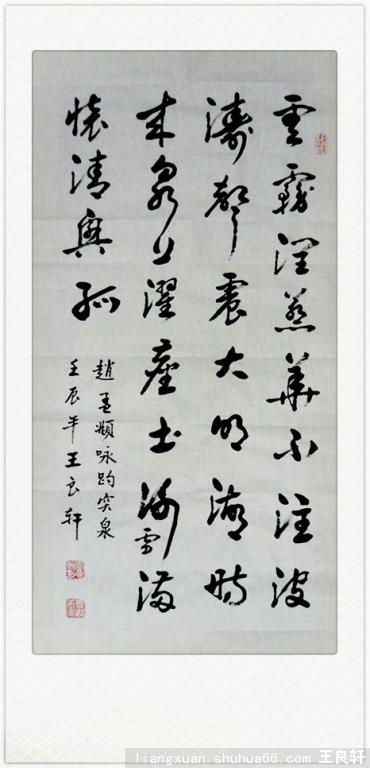 雲霧潤蒸華不注波
濤聲震大明湖時
來泉上濯塵土冰雪滿
懷清興孤
趙孟頫詠趵突泉
壬辰年王良轩
liangxuan.shuhua66.com 王良轩